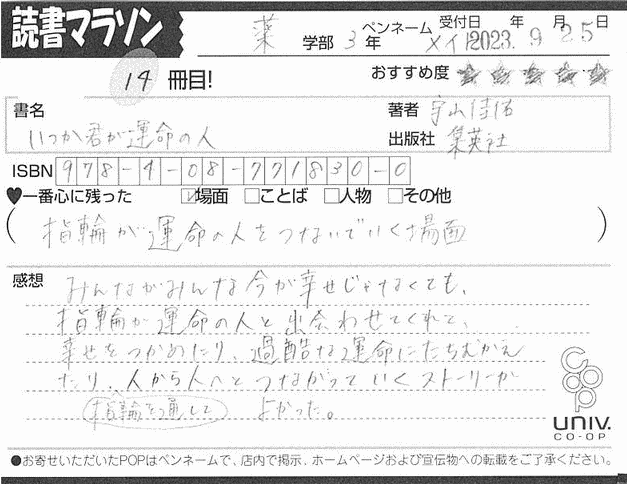 読書マラソン
薬 学部 3年 ペンネーム メイ 受付日 2023年 9月 25日
14 冊目!
おすすめ度 ★★★★★
書名 いつか君が運命の人
著者 宇山佳佑
出版社 集英社
ISBN 978-4-08-771830-0
♥一番心に残った ☑場面 □ことば □人物 □その他
(指輪が運命の人をつないでいく場面)
感想 みんながみんな今が幸せじゃなくても、
指輪が運命の人と出会わせてくれて、
幸せをつかめたり、過酷な運命にたちむかえ
たり、人から人へとつながっていくストーリーが
指輪を通して よかった。
coop
UNIV.
CO-OP
●お寄せいただいたPOPはペンネームで、店内で掲示、ホームページおよび宣伝物への転載をご了承ください。